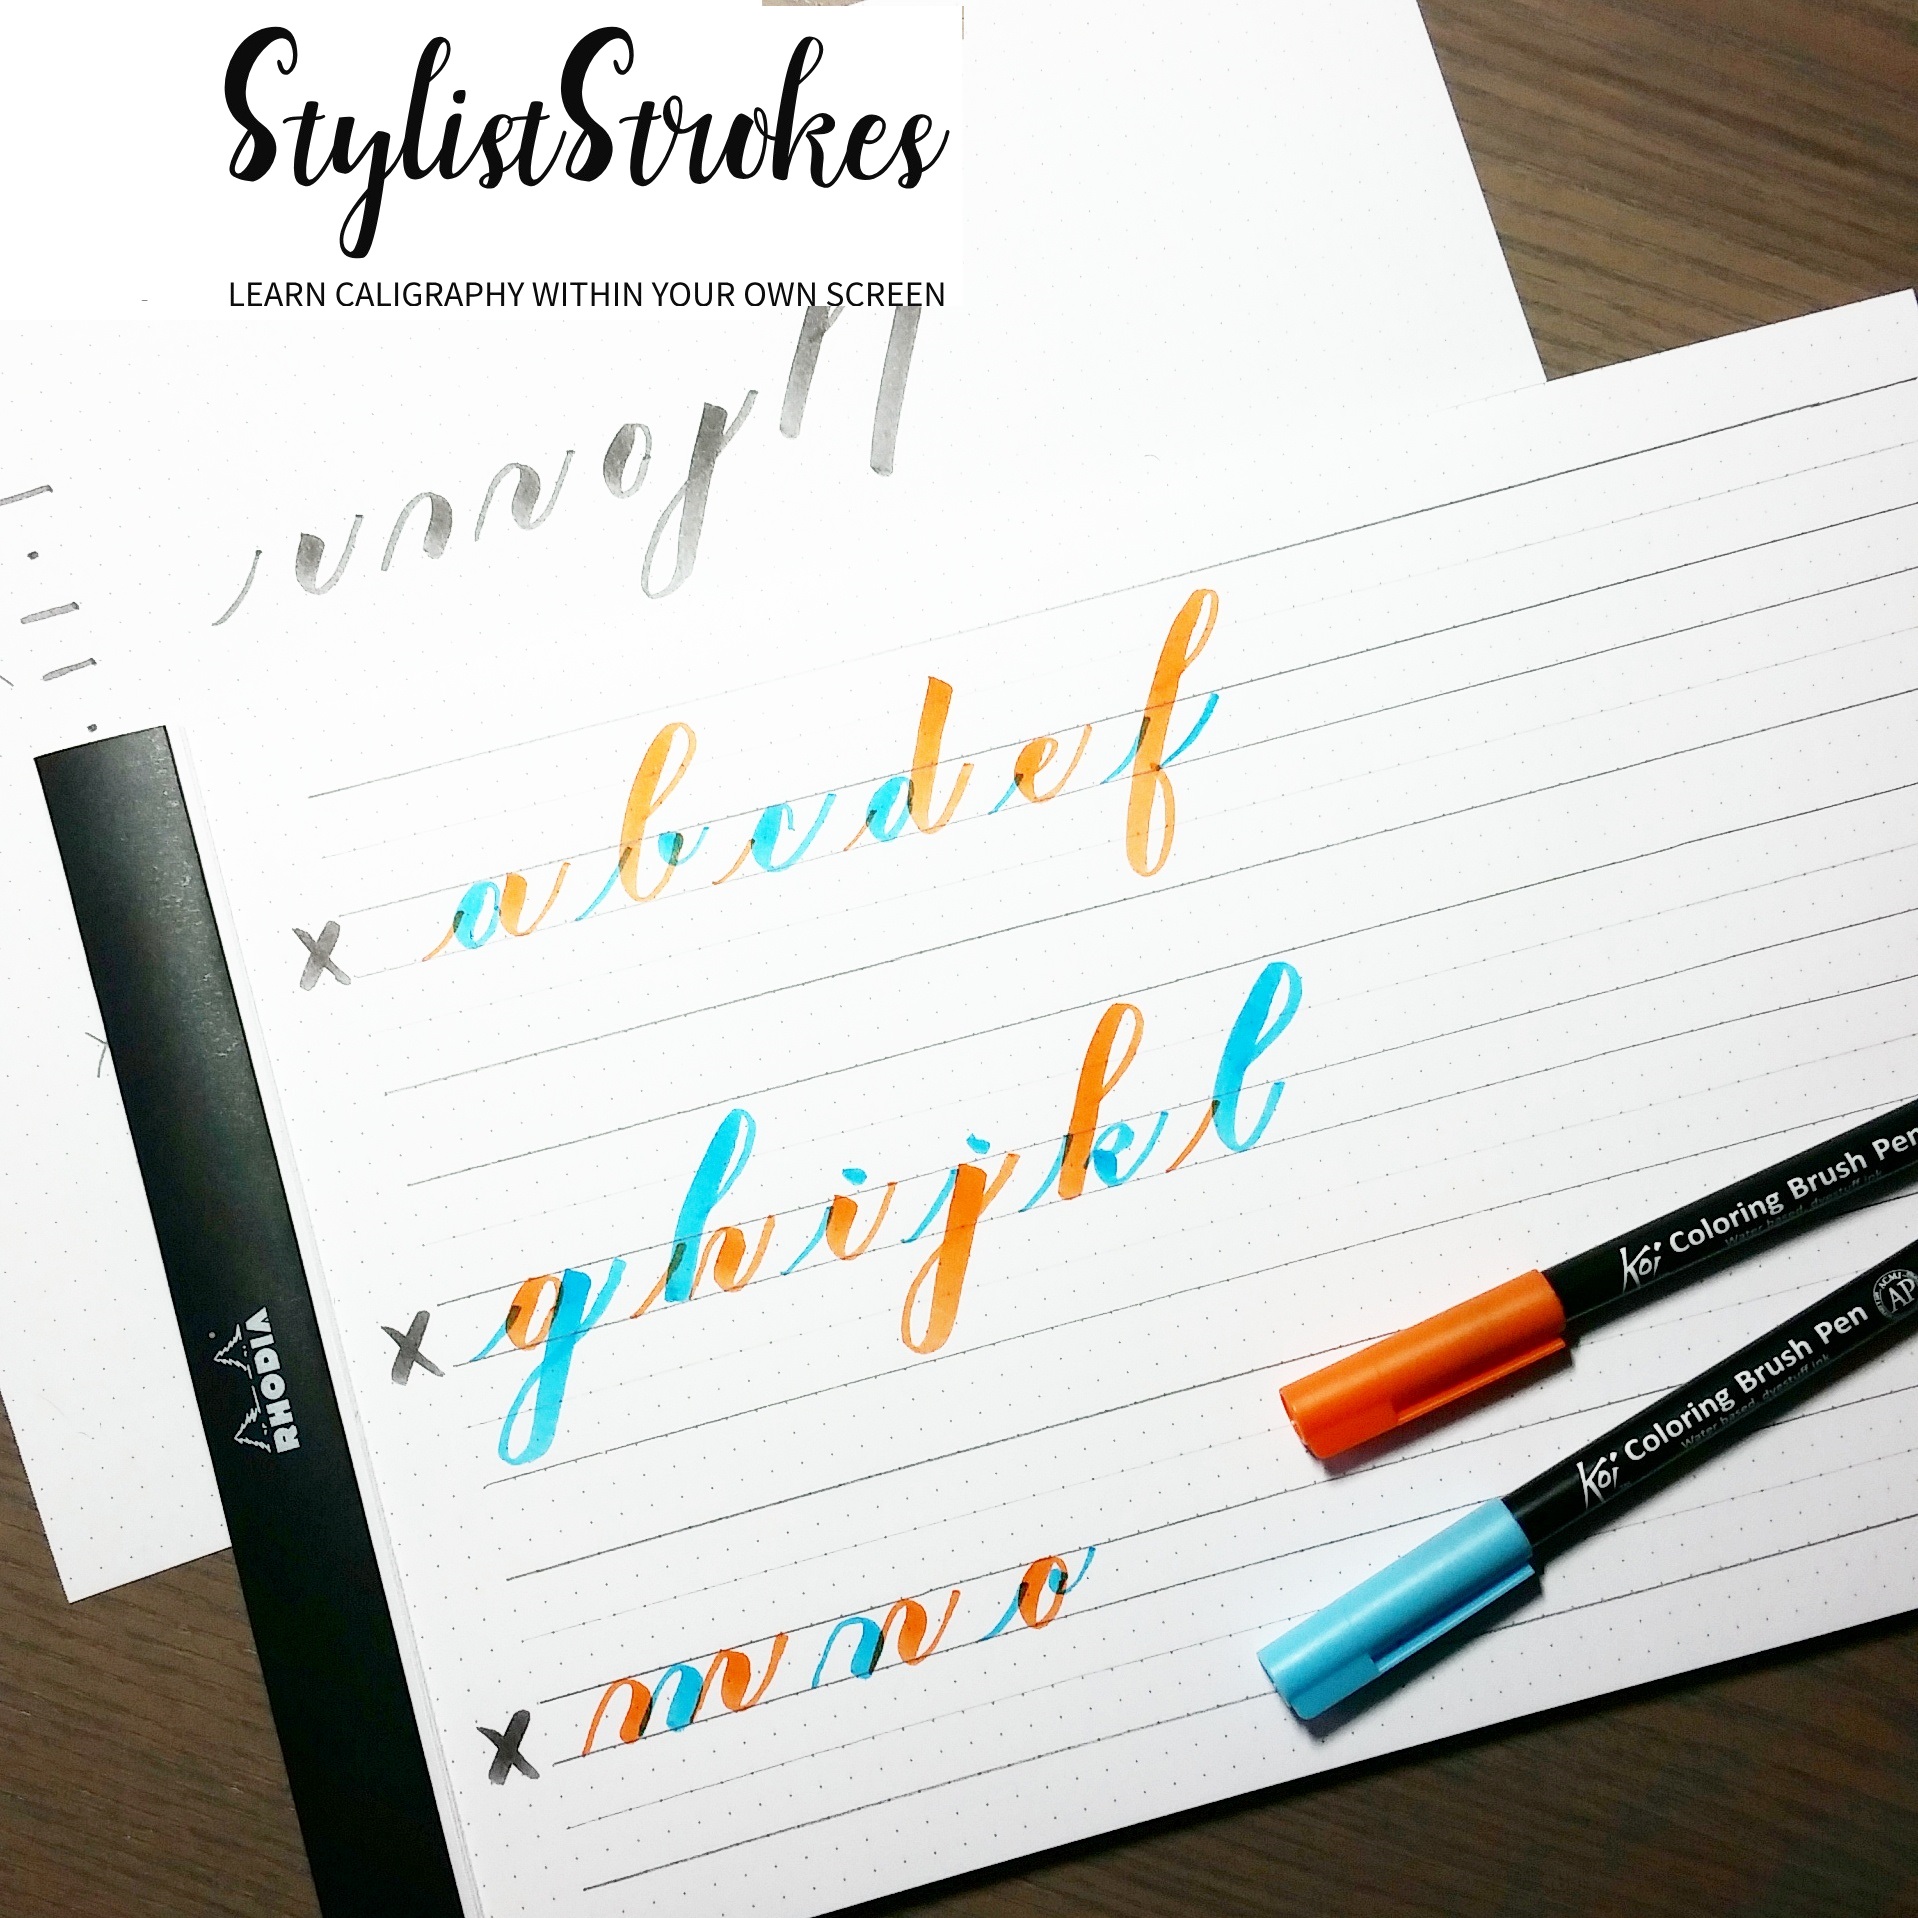 StylistStrokes
LEARN CALIGRAPHY WITHIN YOUR OWN SCREEN
x a b c d e f
x g h i j k l
x m n o
RHODIA
Koi Coloring Brush Pen
Water based, dyestuff ink
Koi Coloring Brush Pen
Water based, dyestuff ink
ACMI
AP